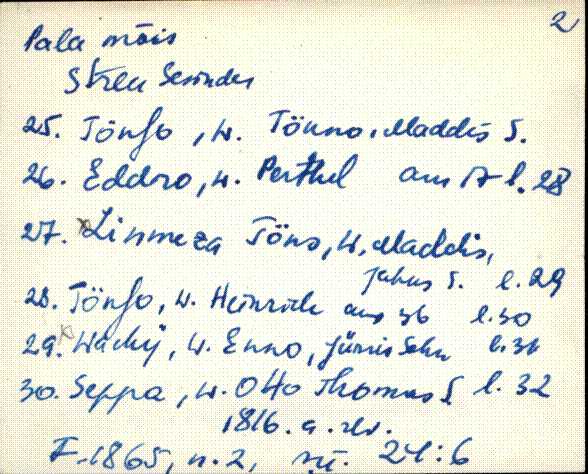 2
Pala mõis
Strea Gesinder
25. Tönso, W. Tönno, Maddis S.
26. Eddro, W. Perthel aus 17 l. 28
27. Linmeza Töns, W. Maddis,
Jahns S. l. 29
28. Tönso, W. Heinrich aus 36 l. 30
29. W. Enno, Jürris Sohn l. 31
30. Seppa, W. Otto Thomas S. l. 32
1816. a. rev.
F. 1865, n. 2, sü. 24:6